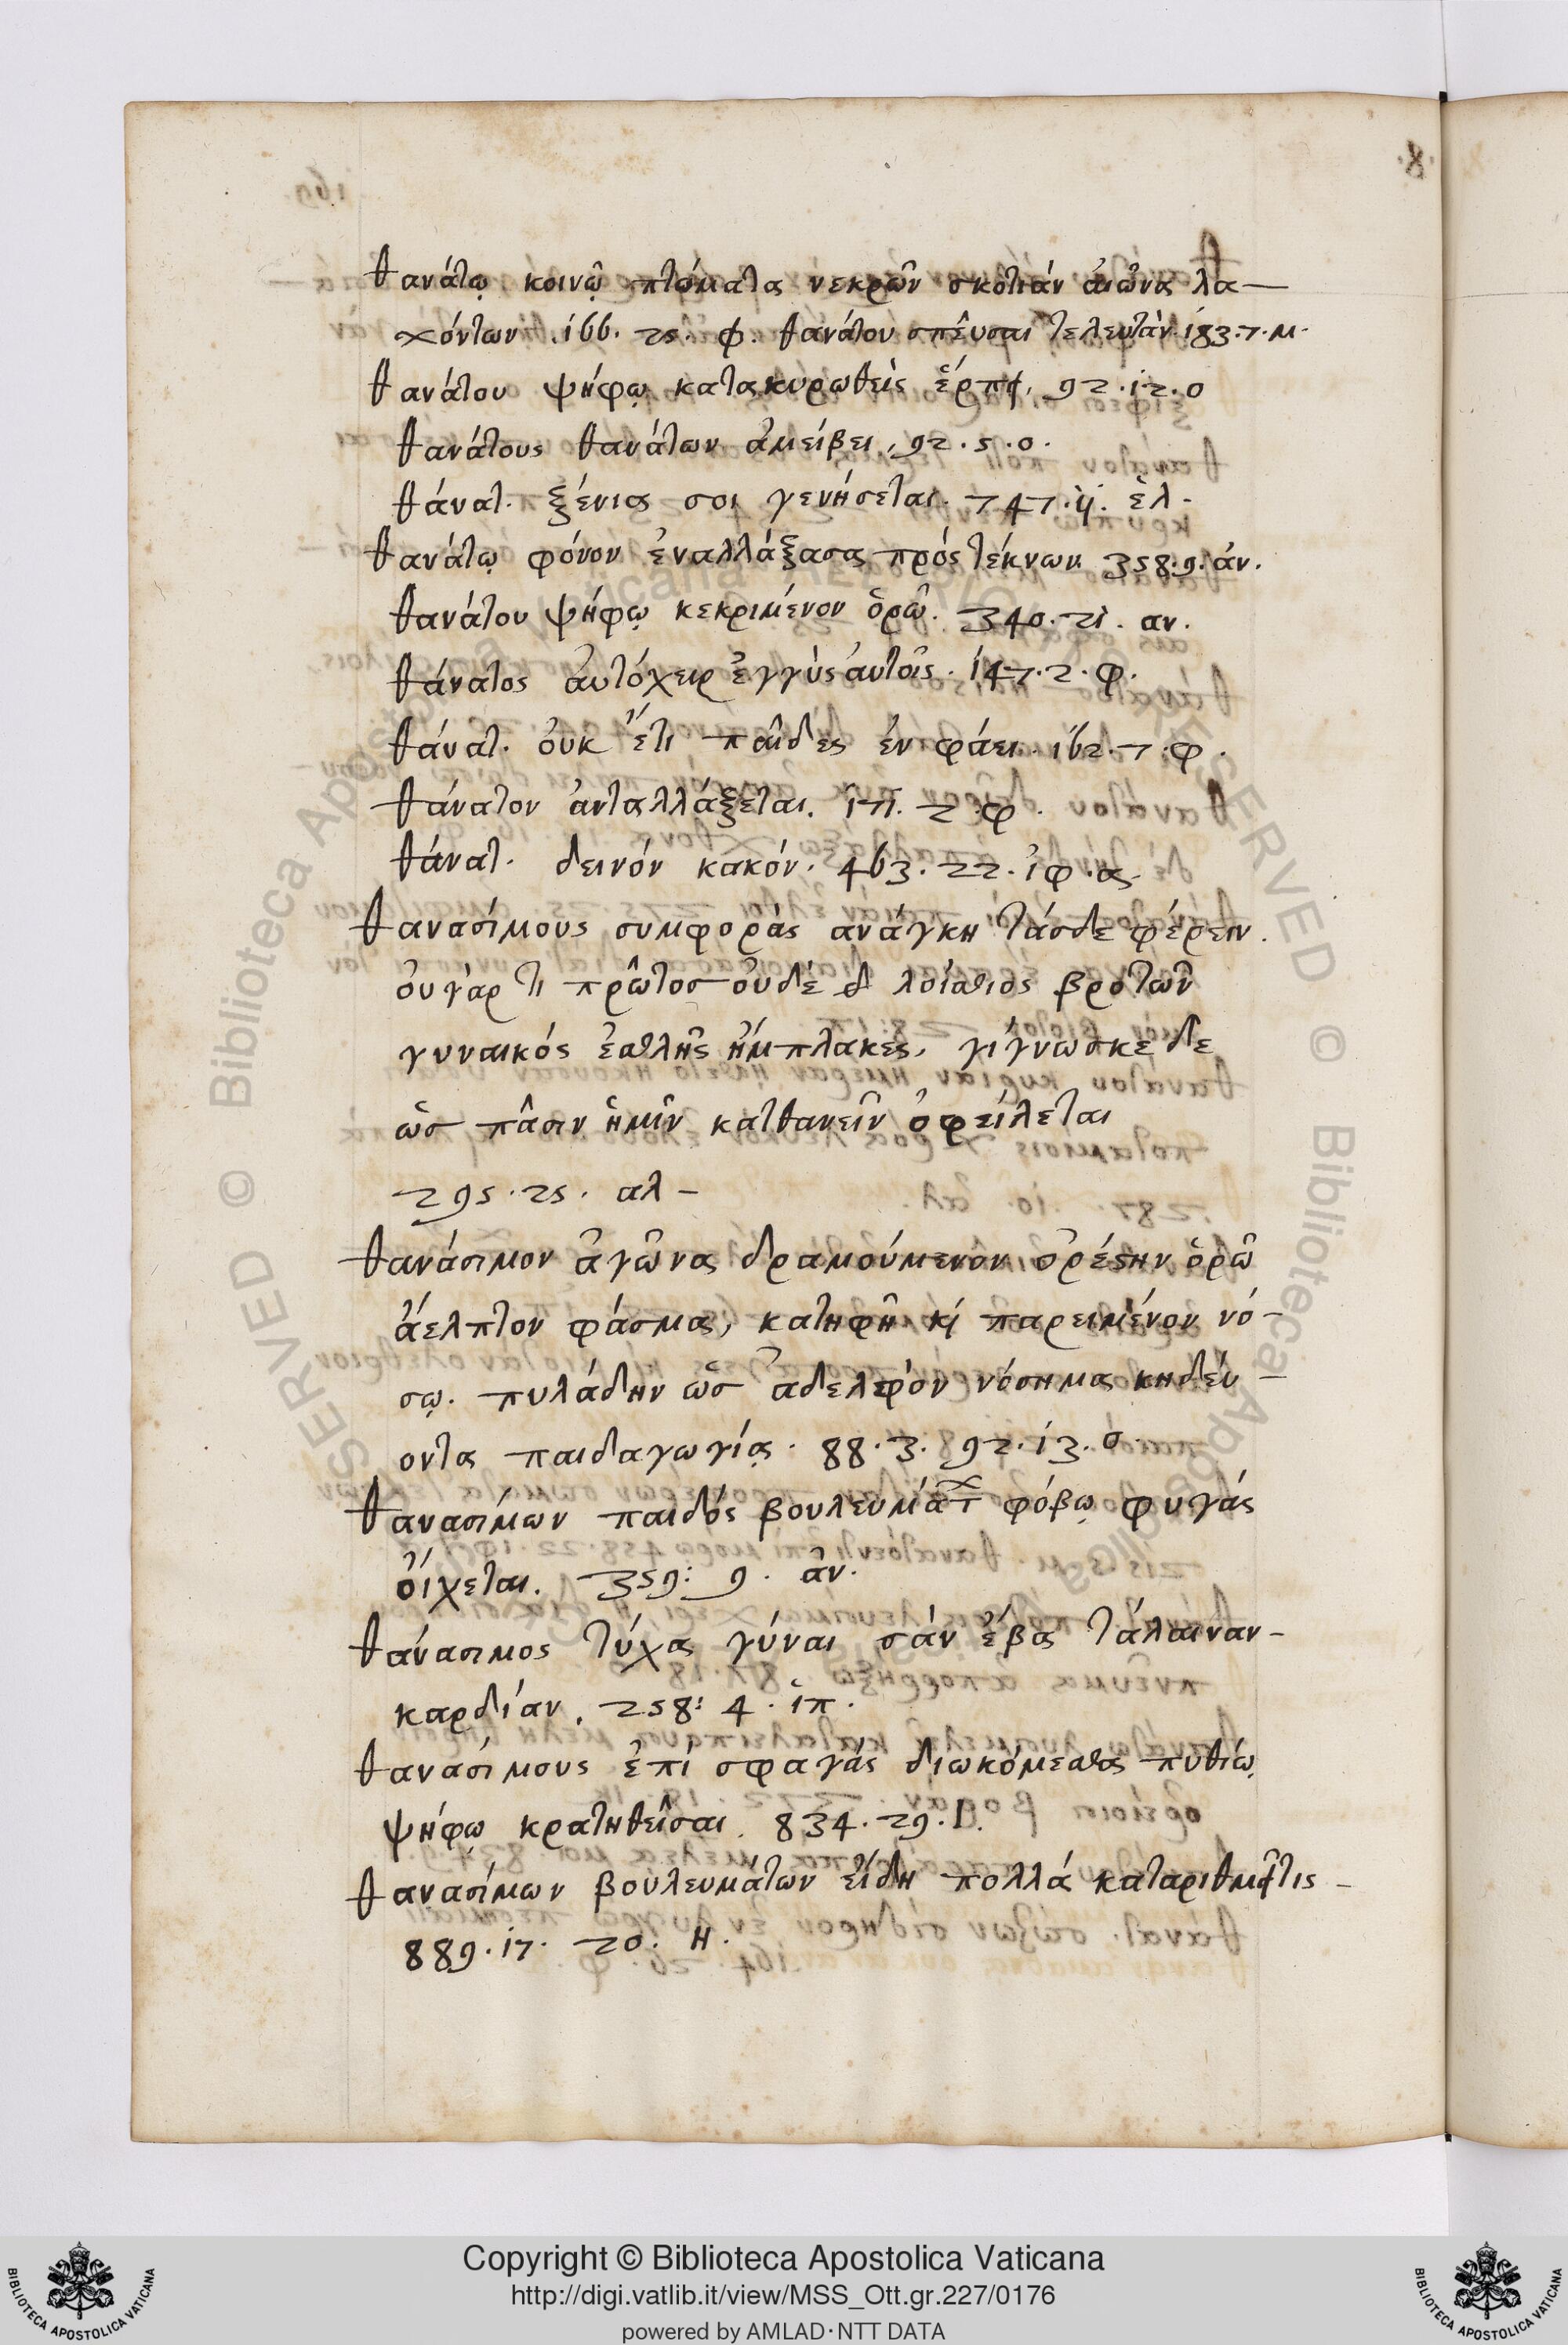 θανάτῳ κοινῷ πτώματα νεκρῶν σκοτίαν αἰῶνα λα—
χόντων .166. 25. φ. θανάτου σπεῦσαι τελευτὰν 183.7.μ.
θανάτου ψήφῳ κατακυρωθεὶς ἕρπει, 92.12.ο
θανάτους θανάτων ἀμείβει, 92.5.ο.
θάνατ. ξένια σοι γενήσεται. 747.11. ἑλ.
θανάτῳ φόνον ἐναλλάξασα πρὸς τέκνων 358.9. ἀν.
θανάτου ψήφῳ κεκριμένον ὁρῶ. 340.21. αν.
θάνατος ἀυτόχειρ ἐγγὺς ἀυτοῖς. 147.2.φ.
θάνατ. ὀυκ ἔτι παῖδες ἐν φάει. 162.7.φ.
θάνατον ἀνταλλάξεται. 171. 2.φ.
θάνατ. δεινόν κακόν. 463.22.ἰφ.α.
θανασίμους συμφοράς ανάγκη τάσδε φέρειν.
ὀυ γάρ τι πρῶτος ὀυδέ λοίσθιος βροτῶν
γυναικός ἐσθλῆς ἤμπλακες, γίγνωσκε δε
ὡς πᾶσιν ἡμῖν κατθανεῖν ὀφείλεται
295.25. αλ—
θανάσιμον ἀγῶνα δραμούμενον ὀρέστην ὁρῶ
ἀέλπτον φάσμα, κατηφῆ κỳ παρειμένον νό—
σῳ. πυλάδην ὡς ἀδελφὸν νόσημα κηδέυ—
οντα παιδαγωγίᾳ. 88.3. 92.13.ο.
θανασίμων παιδός βουλευμάτ φόβῳ φυγάς
ὀίχεται. 359: 9. ἀν.
θανάσιμος τύχα γύναι σὰν ἔβα τάλαιναν—
καρδίαν. 258: 4. ἱπ.
θανασίμους ἐπί σφαγάς διωκόμεσθα πυθίῳ
ψήφῳ κρατηθεῖσαι. 834.29.Ι.
θανασίμων βουλευμάτων εἴδη πολλά καταριθμεῖτις—
889.17. 20. Η.
Copyright © Biblioteca Apostolica Vaticana
http://digi.vatlib.it/view/MSS_Ott.gr.227/0176
powered by AMLAD·NTT DATA